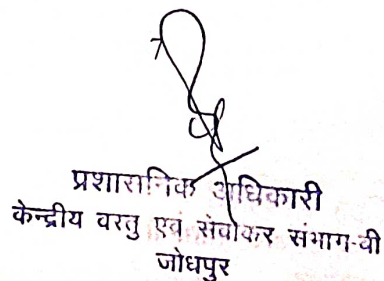 प्रशासनिक अधिकारी
केन्द्रीय वस्तु एवं सेवाकर संभाग-बी
जोधपुर